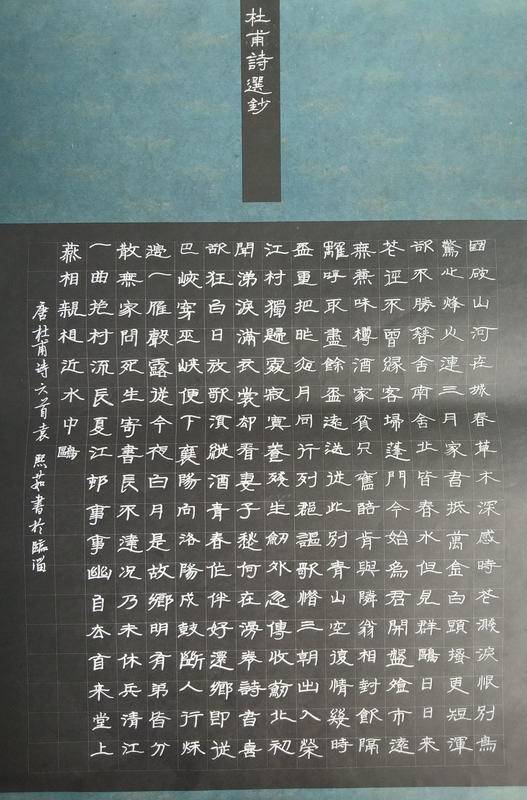 杜甫詩選鈔
國破山河在城春草木深感時花濺淚恨別鳥
驚心烽火連三月家書抵萬金白頭搔更短渾
欲不勝簪舍南舍北皆春水但見群鷗日日来
花徑不曾緣客掃蓬門今始為君開盤飧市遠
無兼味樽酒家貧只舊醅肯與隣翁相對飲隔
籬呼取盡餘盃遠送從此別青山空復情幾時
盃重把昨夜月同行列郡謳歌惜三朝出入榮
江村獨歸處寂寞養殘生劒外忽傳收薊北初
聞涕淚滿衣裳却看妻子愁何在漫卷詩書喜
欲狂白日放歌須縱酒青春作伴好還鄉即從
巴峽穿巫峽便下襄陽向洛陽戍鼓斷人行秋
邊一雁聲露從今夜白月是故鄉明有弟皆分
散無家問死生寄書長不達況乃未休兵清江
一曲抱村流長夏江邨事事幽自去自来堂上
燕相親相近水中鷗
唐杜甫詩六首袁熙茹書於臨淄